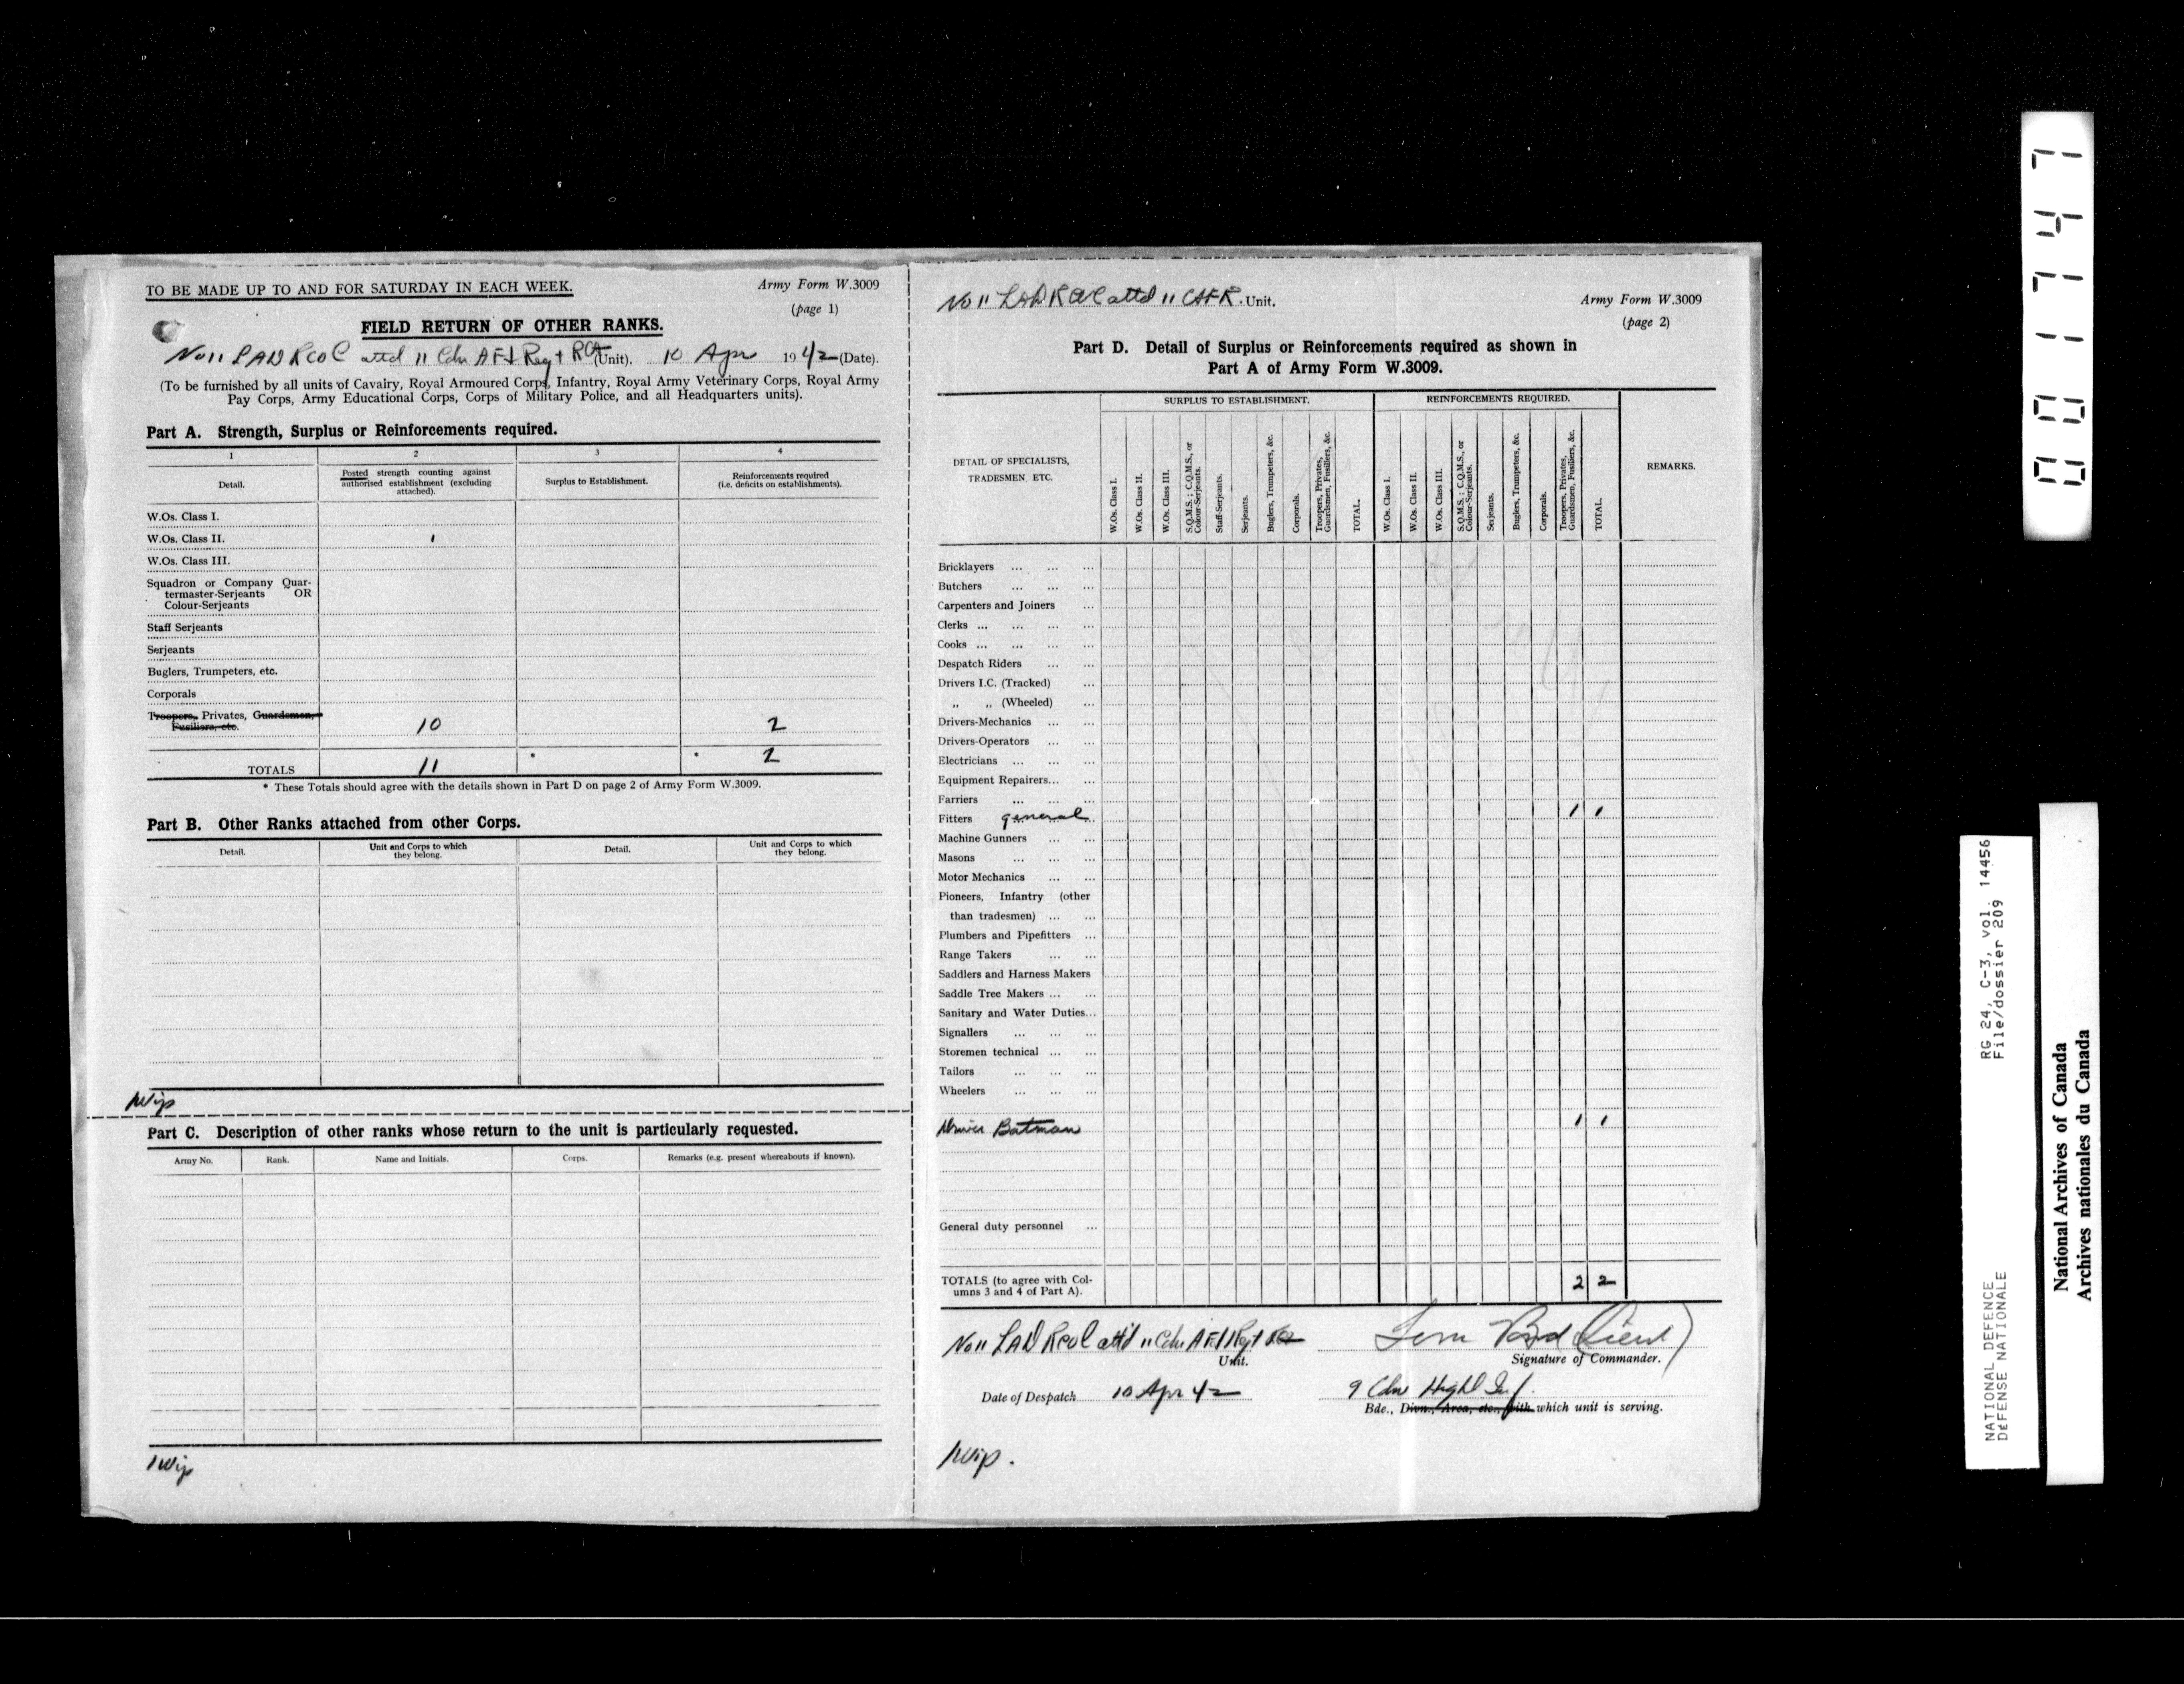 TO BE MADE UP TO AND FOR SATURDAY IN EACH WEEK.
Army Form W.3009
(page 1)
FIELD RETURN OF OTHER RANKS.
No 11 LAD RCOC attd 11 Cdn A Fd Regt RCA (Unit). 10 Apr 1942 (Date).
(To be furnished by all units of Cavalry, Royal Armoured Corps, Infantry, Royal Army Veterinary Corps, Royal Army
Pay Corps, Army Educational Corps, Corps of Military Police, and all Headquarters units).
Part A. Strength, Surplus or Reinforcements required.
1 2 3 4
Detail.
Posted strength counting against
authorised establishment (excluding
attached).
Surplus to Establishment.
Reinforcements required
(i.e. deficits on establishments).
W.Os. Class I.
W.Os. Class II. 1
W.Os. Class III.
Squadron or Company Quar-
termaster-Serjeants OR
Colour-Serjeants
Staff Serjeants
Serjeants
Buglers, Trumpeters, etc.
Corporals
Troopers, Privates, Guardsmen,
Fusiliers, etc. 10 2
TOTALS 11 * * 2
* These Totals should agree with the details shown in Part D on page 2 of Army Form W.3009.
Part B. Other Ranks attached from other Corps.
Detail.
Unit and Corps to which
they belong.
Detail.
Unit and Corps to which
they belong.
Part C. Description of other ranks whose return to the unit is particularly requested.
Army No. Rank. Name and Initials. Corps. Remarks (e.g. present whereabouts if known).
No 11 LAD RCOC attd 11 CAFR. Unit.
Army Form W.3009
(page 2)
Part D. Detail of Surplus or Reinforcements required as shown in
Part A of Army Form W.3009.
DETAIL OF SPECIALISTS,
TRADESMEN, ETC.
SURPLUS TO ESTABLISHMENT.
W.Os. Class I.
W.Os. Class II.
W.Os. Class III.
S.Q.M.S.; C.Q.M.S., or
Colour-Serjeants.
Staff-Serjeants.
Serjeants.
Buglers, Trumpeters, &c.
Corporals.
Troopers, Privates,
Guardsmen, Fusiliers, &c.
TOTAL.
REINFORCEMENTS REQUIRED.
W.Os. Class I.
W.Os. Class II.
W.Os. Class III.
S.Q.M.S.; C.Q.M.S., or
Colour-Serjeants.
Serjeants.
Buglers, Trumpeters, &c.
Corporals.
Troopers, Privates,
Guardsmen, Fusiliers, &c.
TOTAL.
REMARKS.
Bricklayers ... ... ...
Butchers ... ... ...
Carpenters and Joiners ...
Clerks ... ... ... ...
Cooks ... ... ... ...
Despatch Riders ... ...
Drivers I.C. (Tracked) ...
„ „ (Wheeled) ...
Drivers-Mechanics ... ...
Drivers-Operators ... ...
Electricians ... ... ...
Equipment Repairers... ...
Farriers ... ... ...
Fitters general 1 1
Machine Gunners ... ...
Masons ... ... ...
Motor Mechanics ... ...
Pioneers, Infantry (other
than tradesmen) ... ...
Plumbers and Pipefitters ...
Range Takers ... ...
Saddlers and Harness Makers
Saddle Tree Makers ... ...
Sanitary and Water Duties...
Signallers ... ... ...
Storemen technical ... ...
Tailors ... ... ...
Wheelers ... ... ...
Driver Batman 1 1
General duty personnel ...
TOTALS (to agree with Col-
umns 3 and 4 of Part A). 2 2
No 11 LAD RCOC attd 11 Cdn A Fd Regt RCA
Unit.
(Lieut)
Signature of Commander.
Date of Despatch 10 Apr 42
9 Cdn Highl Inf.
Bde., Divn., Area, etc., with which unit is serving.
001747
RG 24, C-3, vol. 14456
File/dossier 209
NATIONAL DEFENCE
DÉFENSE NATIONALE
National Archives of Canada
Archives nationales du Canada